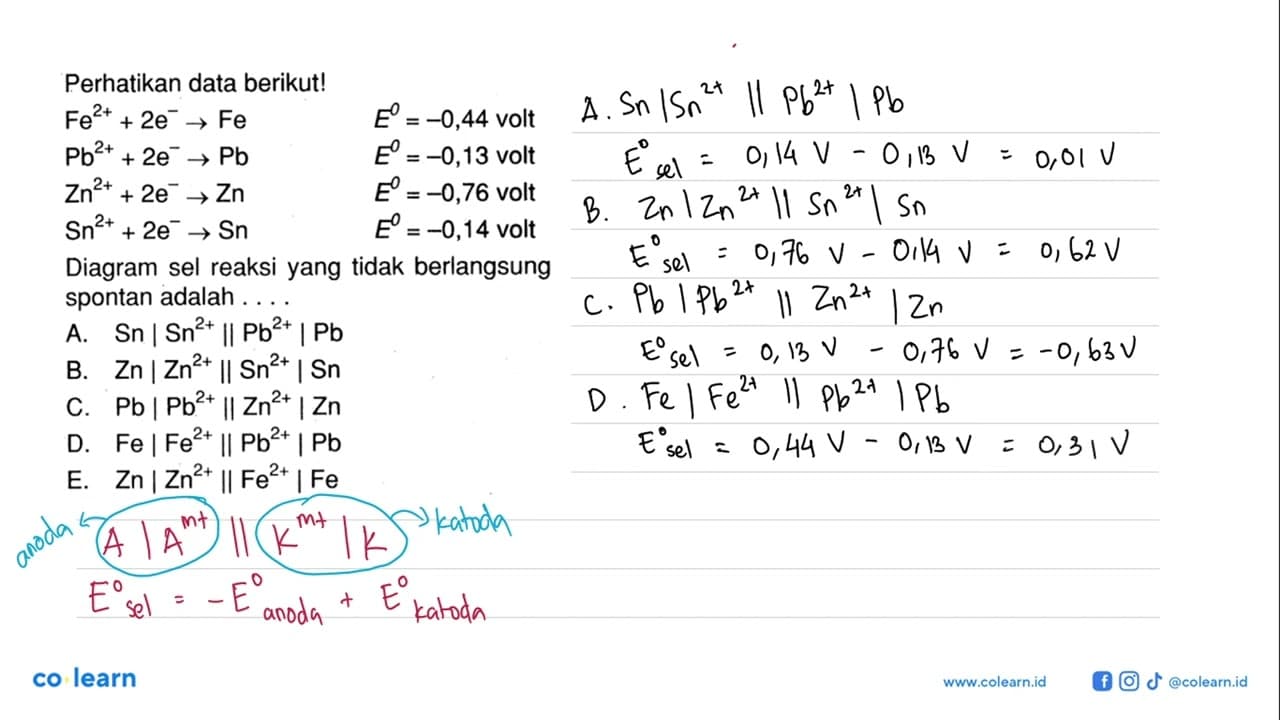 Perhatikan data berikut!
Fe²⁺ + 2e⁻ → Fe E⁰ = –0,44 volt
Pb²⁺ + 2e⁻ → Pb E⁰ = –0,13 volt
Zn²⁺ + 2e⁻ → Zn E⁰ = –0,76 volt
Sn²⁺ + 2e⁻ → Sn E⁰ = –0,14 volt
Diagram sel reaksi yang tidak berlangsung
spontan adalah . . . .
A. Sn | Sn²⁺ || Pb²⁺ | Pb
B. Zn | Zn²⁺ || Sn²⁺ | Sn
C. Pb | Pb²⁺ || Zn²⁺ | Zn
D. Fe | Fe²⁺ || Pb²⁺ | Pb
E. Zn | Zn²⁺ || Fe²⁺ | Fe
anoda A | A^m+ || K^m+ | K katoda
E⁰ sel = -E⁰ anoda + E⁰ katoda
A. Sn | Sn²⁺ || Pb²⁺ | Pb
E⁰ sel = 0,14 V - 0,13 V = 0,01 V
B. Zn | Zn²⁺ || Sn²⁺ | Sn
E⁰ sel = 0,76 V - 0,14 V = 0,62 V
C. Pb | Pb²⁺ || Zn²⁺ | Zn
E⁰ sel = 0,13 V - 0,76 V = -0,63 V
D. Fe | Fe²⁺ || Pb²⁺ | Pb
E⁰ sel = 0,44 V - 0,13 V = 0,31 V
co learn
www.colearn.id
@colearn.id